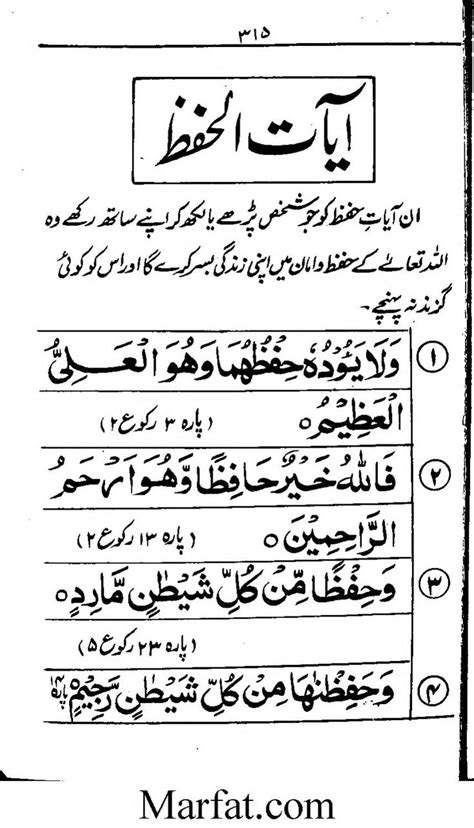 ۳۱۵
آیات الحفظ
ان آیاتِ حفظ کو جو شخص پڑھے یا لکھ کر اپنے ساتھ رکھے وہ
اللہ تعالےٰ کے حفظ و امان میں اپنی زندگی بسر کرے گا اور اس کو کوئی
گزند نہ پہنچے۔
۱ وَلَا يَـُٔوْدُهٗ حِفْظُهُمَا وَهُوَ الْعَـلِـىُّ
الْعَظِيْمُ ٥ (پارہ ۳ رکوع ۲)
۲ فَاللّٰهُ خَيْرٌ حَافِظًا وَّهُوَ اَرْحَمُ
الرَّاحِمِيْنَ ٥ (پارہ ۱۳ رکوع ۲)
۳ وَحِفْظًا مِّنْ كُلِّ شَيْطٰنٍ مَّارِدٍ ٥
(پارہ ۲۳ رکوع ۵)
۴ وَحَفِظْنٰهَا مِنْ كُلِّ شَيْطٰنٍ رَّجِيْمٍ پارہ ۱۴
Marfat.com